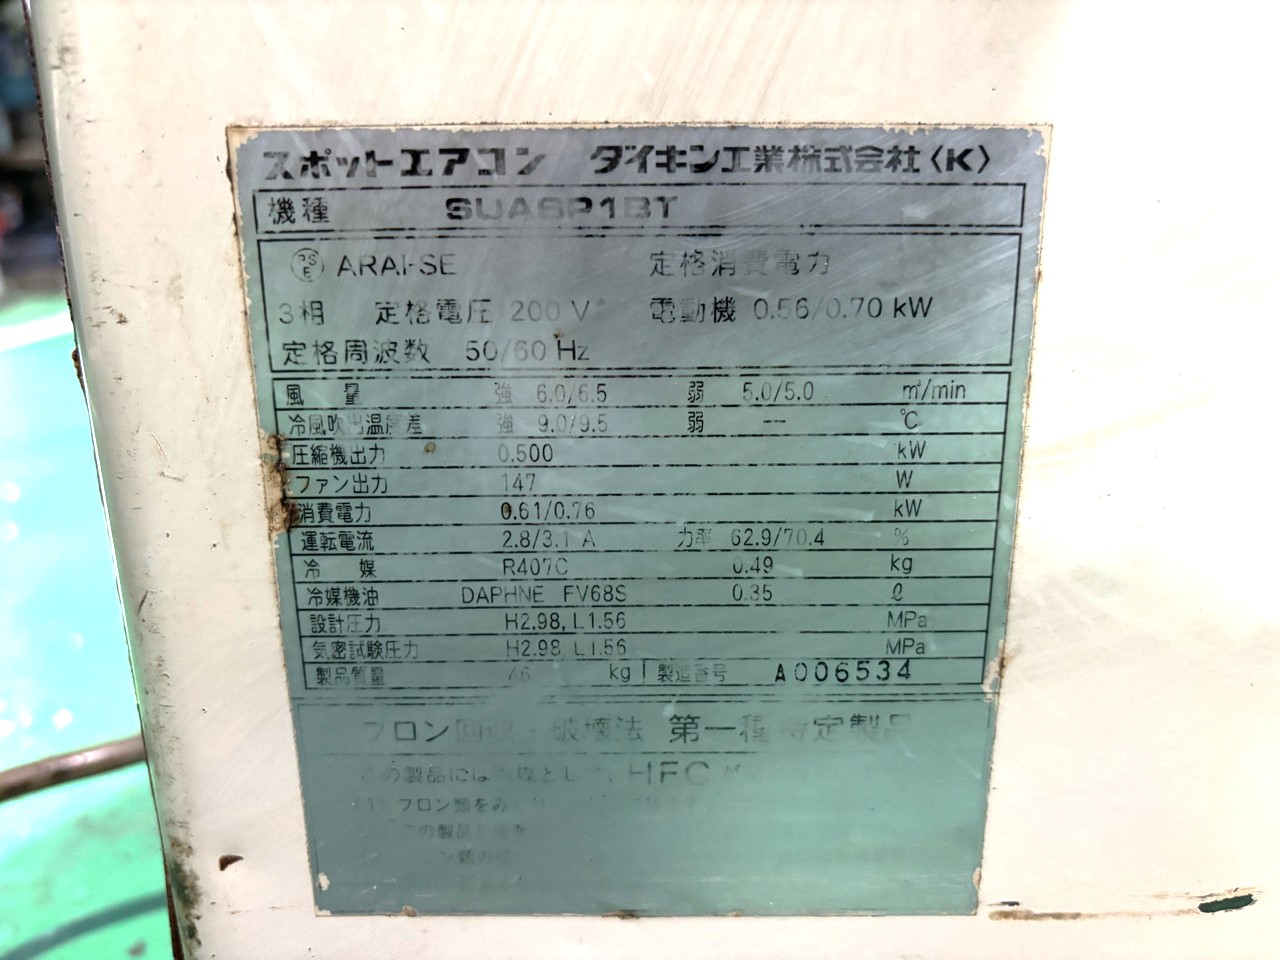 スポットエアコン ダイキン工業株式会社〈K〉
機種 SUASP1BT
PSE ARAI-SE 定格消費電力
3相 定格電圧 200 V 電動機 0.56/0.70 kW
定格周波数 50/60 Hz
風量 強 6.0/6.5 弱 5.0/5.0 m³/min
冷風吹出温度差 強 9.0/9.5 弱 -- ℃
圧縮機出力 0.500 kW
ファン出力 147 W
消費電力 0.61/0.76 kW
運転電流 2.8/3.1 A 力率 62.9/70.4 %
冷媒 R407C 0.49 kg
冷媒機油 DAPHNE FV68S 0.35 ℓ
設計圧力 H2.98, L1.56 MPa
気密試験圧力 H2.98 L1.56 MPa
製品質量 46 kg 製造番号 A006534
フロン回収・破壊法 第一種特定製品
この製品には冷媒として、HFCが
(1) フロン類をみだり
この製品を
ン類の